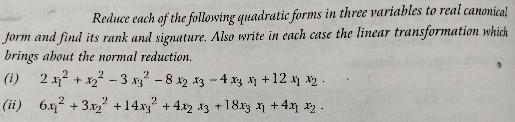 Reduce each of the following quadratic forms in three variables to real canonical
form and find its rank and signature. Also write in each case the linear transformation which
brings about the normal reduction.
(i) 2 x₁² + x₂² – 3 x₃² – 8 x₂ x₃ – 4 x₃ x₁ + 12 x₁ x₂ .
(ii) 6x₁² + 3x₂² + 14x₃² + 4x₂ x₃ + 18x₃ x₁ + 4x₁ x₂ .